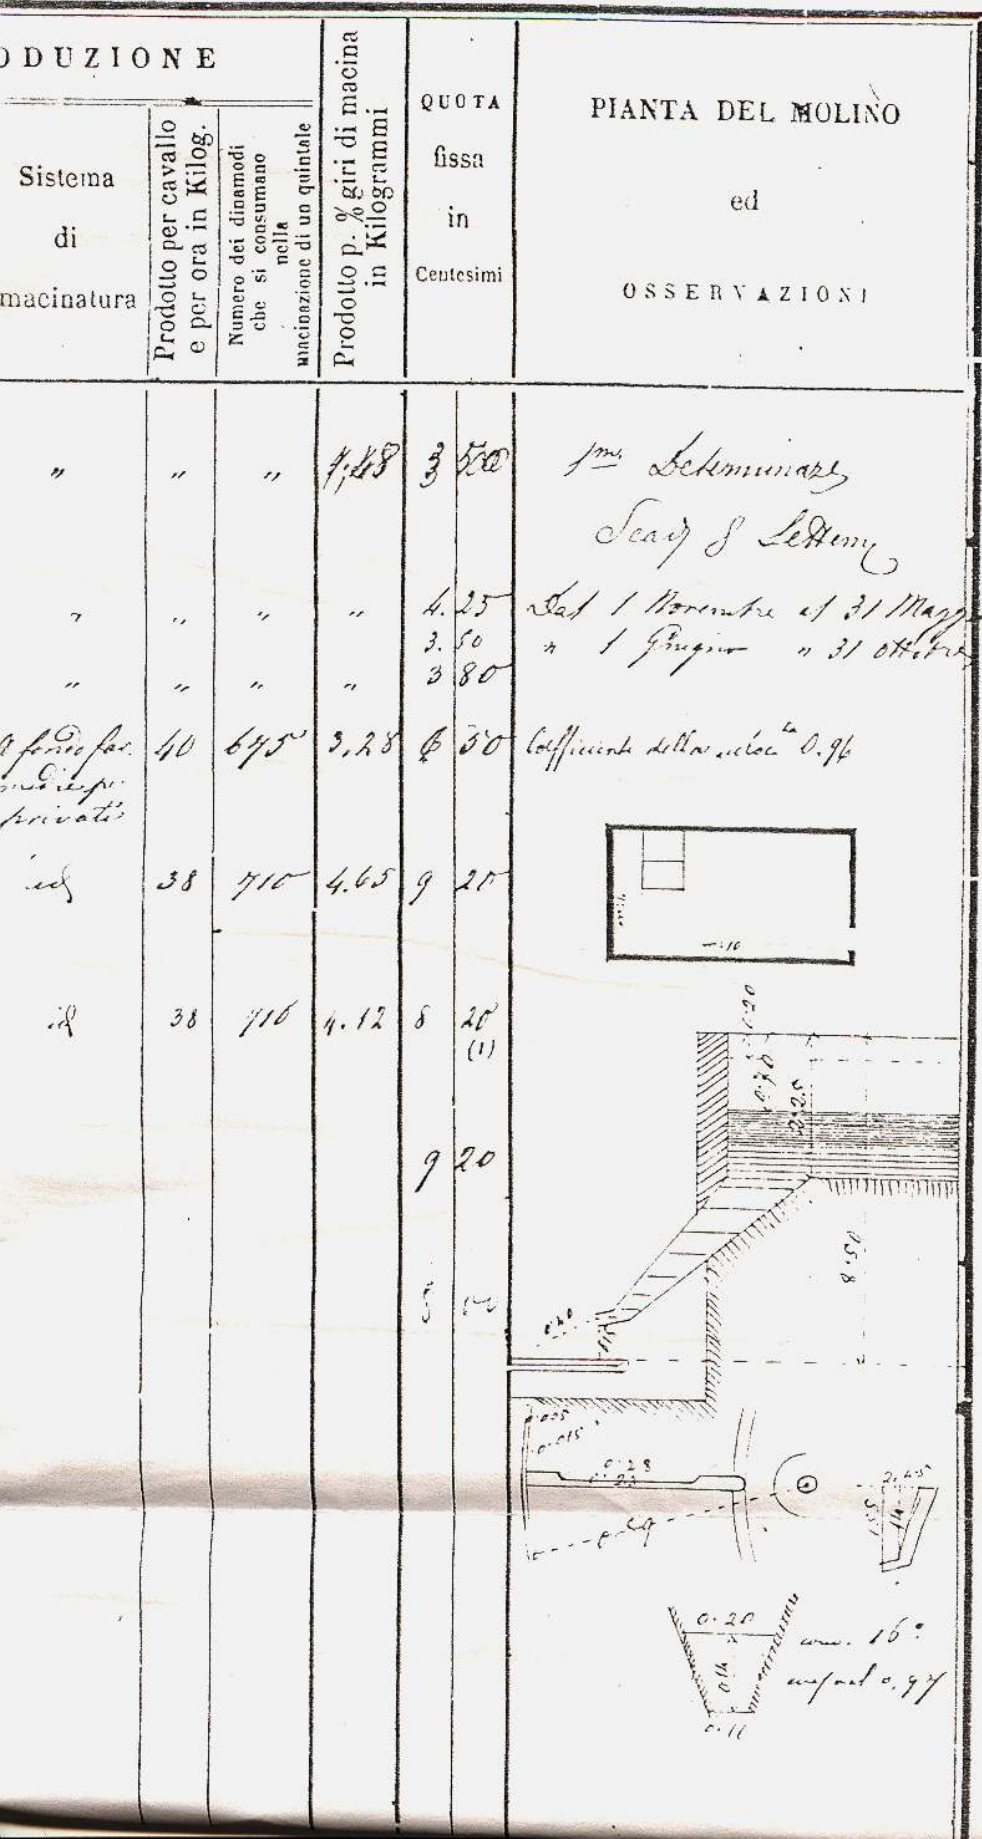 ODUZIONE
Sistema
di
macinatura
Prodotto per cavallo
e per ora in Kilog.
Numero dei dinamodi
che si consumano
nella
macinazione di un quintale
Prodotto p. % giri di macina
in Kilogrammi
QUOTA
fissa
in
Centesimi
PIANTA DEL MOLINO
ed
OSSERVAZIONI
" " " 3 500
" " " " 4.25 Dal 1 Novembre al 31 Magg
3.50 " 1 Giugno " 31 Ottobre
" " " " 3 80
a fondo 40 675 3,28 6 50 Coefficiente della 0.96
privati
id 38 710 4.65 9 20
id 38 710 4.12 8 20
(1)
9 20
0.20
0.70
2.25
0.40
0.035
0.015
0.28
0.23
2.45
0.20
014
0.11
16°
0.97